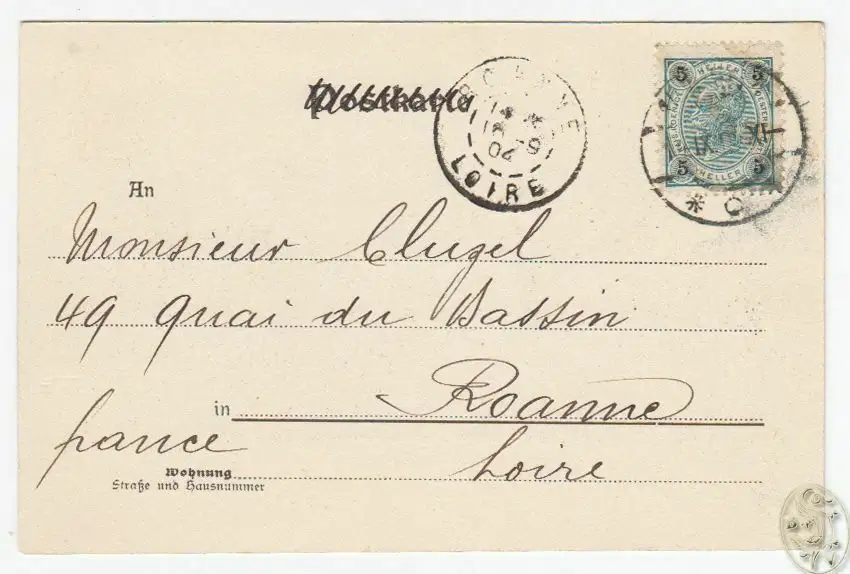 Postkarte
ROANNE
02
LOIRE
5 HELLER 5
5 HELLER 5
An
Monsieur Clugel
49 Quai du Bassin
in Roanne
france
Loire
Wohnung
Straße und Hausnummer